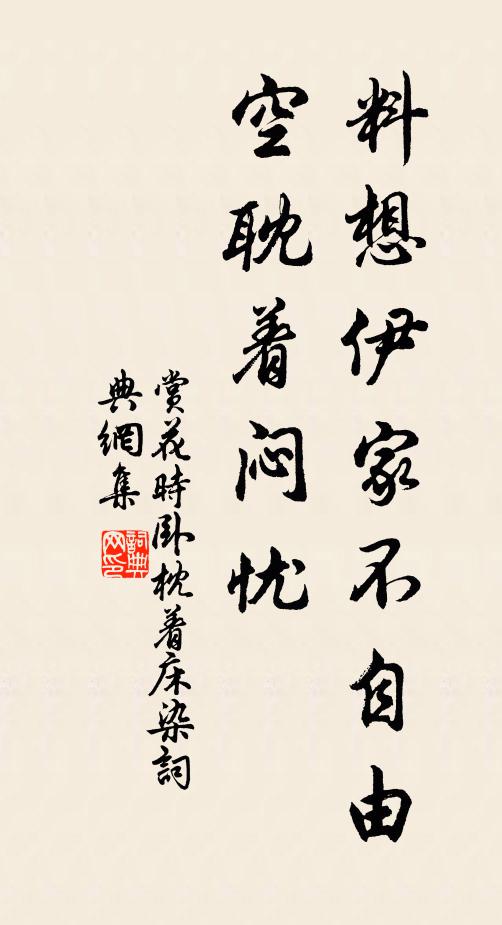 料想伊家不自由
空耽着闷忧
赏花時卧枕着床染詞
典網集
詞典
网印